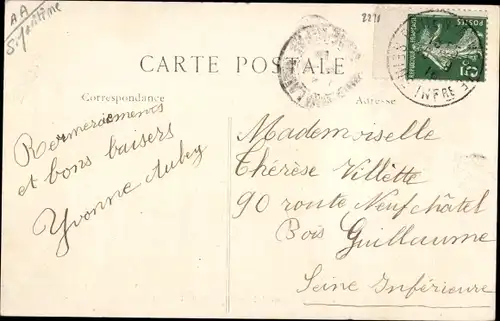 AA
2271
POSTES
5c
INFRE
CARTE POSTALE
Correspondance
Adresse
Remerciements
et bons baisers
Yvonne Aubry
Mademoiselle
Thérèse Villette
90 route Neufchâtel
Bois Guillaume
Seine Inférieure